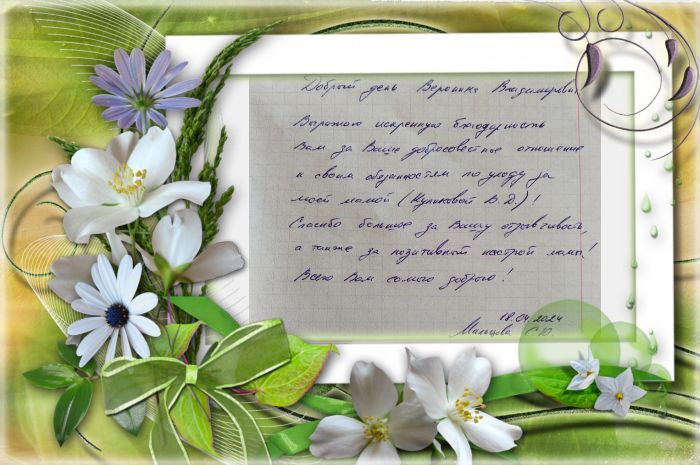 Добрый день Вероника Владимировна
Выражаю искреннюю благодарность
Вам за Ваше добросовестное отношение
к своим обязанностям по уходу за
моей мамой (Куликовой В.Д.)!
Спасибо большое за Вашу отзывчивость,
а также за позитивный настрой мамы!
Всего Вам самого доброго!
18.04.2024
Мальцева С.Ю.